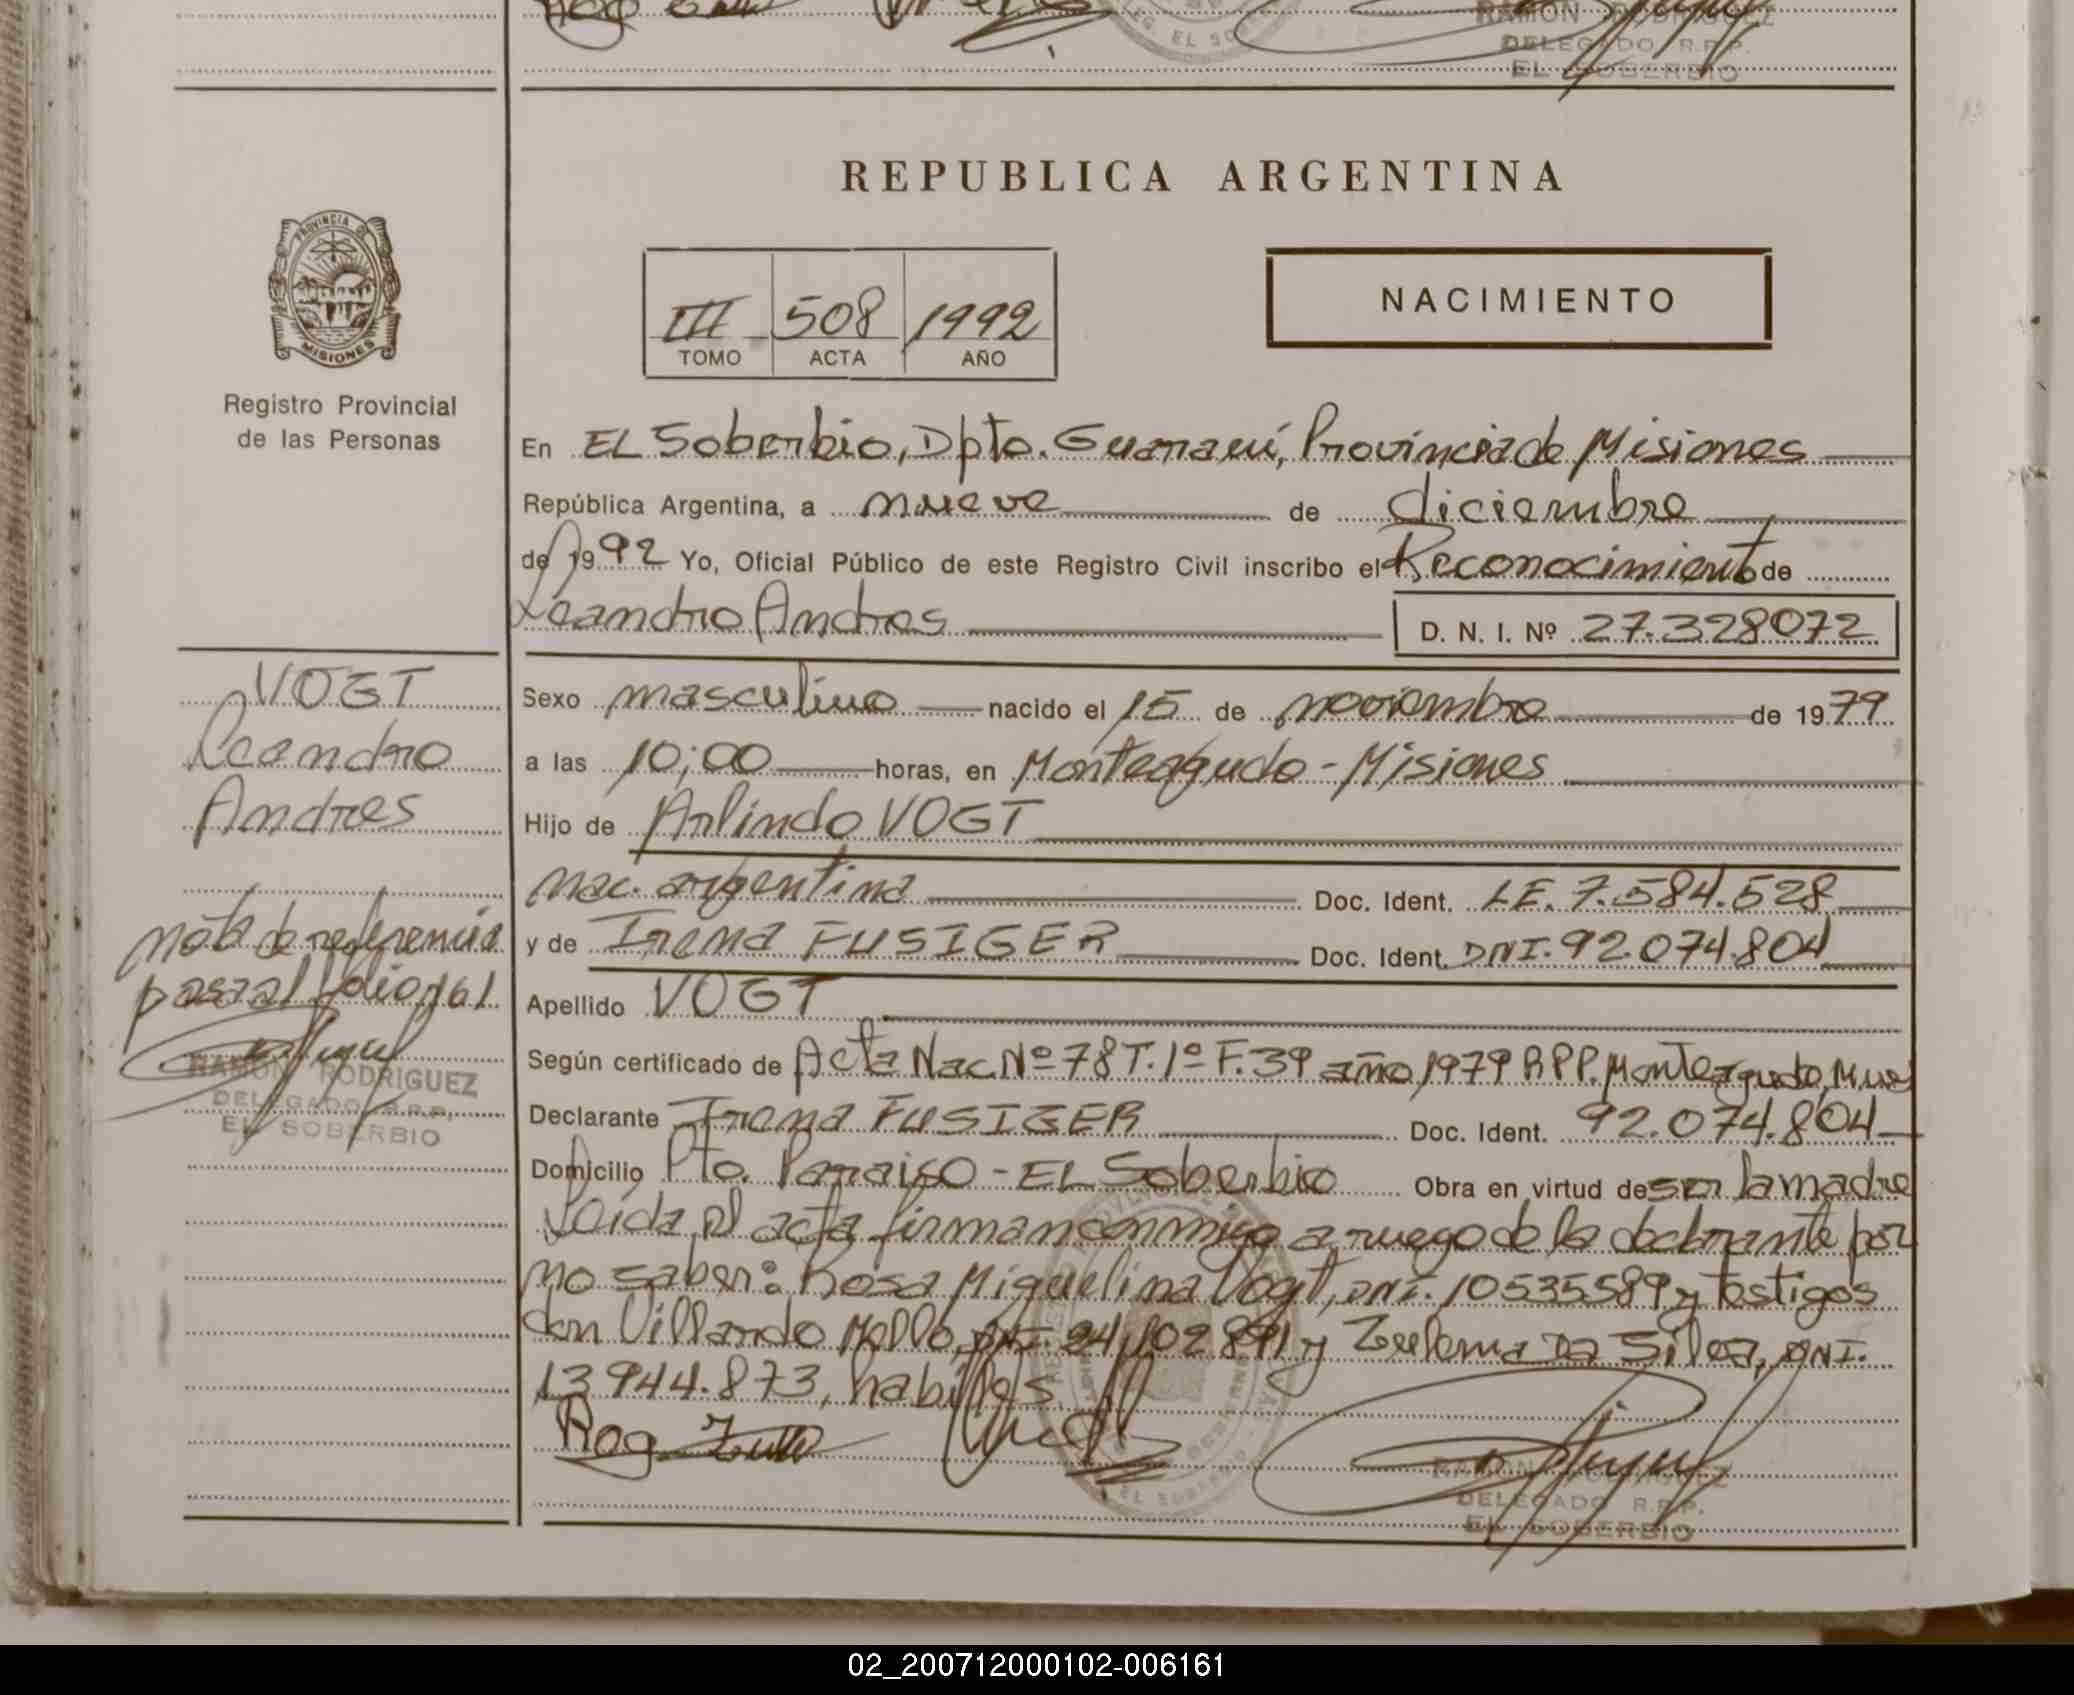 EG. EL SO
RAMON RODRIGUEZ
DELEGADO R.P.P.
EL SOBERBIO
REPUBLICA ARGENTINA
PROVINCIA DE
MISIONES
Registro Provincial
de las Personas
III 508 1992
TOMO ACTA AÑO
NACIMIENTO
En EL Soberbio, Dpto. Guaraní, Provincia de Misiones
República Argentina, a nueve de diciembre
de 1992 Yo, Oficial Público de este Registro Civil inscribo el Reconocimiento de
Leandro Andres
D. N. I. Nº 27.328072
VOGT
Leandro
Andres
nota de referencia
pasa al folio 161
RAMON RODRIGUEZ
DELEGADO R.R.P.
EL SOBERBIO
Sexo masculino nacido el 15 de noviembre de 1979
a las 10;00 horas, en Monteagudo - Misiones
Hijo de Arlindo VOGT
nac. argentina Doc. Ident. LE. 7.584.528
y de Irena FUSIGER Doc. Ident. DNI. 92.074.804
Apellido VOGT
Según certificado de Acta Nac. Nº 78 T. 1º F. 39 año 1979 RPP. Monteagudo, Mnes
Declarante Irena FUSIGER Doc. Ident. 92.074.804
Domicilio Pto. Paraiso - EL Soberbio Obra en virtud de ser la madre
Leida el acta firman conmigo a ruego de la declarante por
no saber: Rosa Miguelina Vogt, DNI. 10535589 y testigos
don Villando Mello, DNI. 24,102891 y Zulema Da Silva, DNI.
13944.873, habiles
RAMON RODRIGUEZ
DELEGADO R.R.P.
EL SOBERBIO
02_200712000102-006161